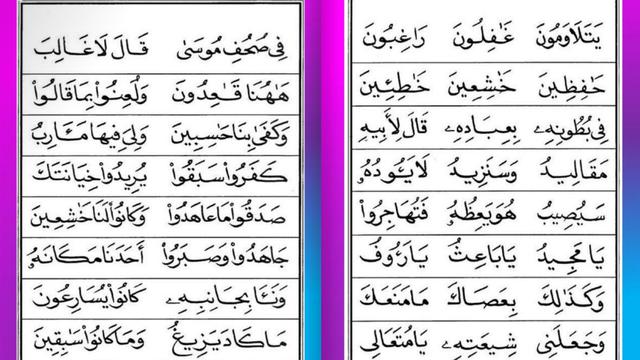 يَتَلَاوَمُونَ غَٰفِلُونَ رَاغِبُونَ
حَٰفِظِينَ خَٰشِعِينَ خَٰطِئِينَ
فِي بُطُونِهِۦ بِعِبَادِهِۦ قَالَ لِأَبِيهِ
مَقَالِيدُ وَسَنَزِيدُ لَا يَـُٔودُهُۥ
سَيُصِيبُ هُوَ يَعِظُهُۥ فَتُهَاجِرُوا۟
يَا مَجِيدُ يَا بَاعِثُ يَا رَءُوفُ
وَكَذَٰلِكَ بِعَصَاكَ مَا مَنَعَكَ
وَجَعَلَنِي شِيعَتِهِۦ يَا مُتَعَالِي
فِي صُحُفِ مُوسَىٰ قَالَ لَا غَالِبَ
هَٰهُنَا قَٰعِدُونَ وَلُعِنُوا۟ بِمَا قَالُوا۟
وَكَفَىٰ بِنَا حَٰسِبِينَ وَلِيَ فِيهَا مَـَٔارِبُ
كَفَرُوا۟ سَبَقُوا۟ يُرِيدُوا۟ خِيَانَتَكَ
صَدَقُوا۟ مَا عَاهَدُوا۟ وَكَانُوا۟ لَنَا خَٰشِعِينَ
جَاهَدُوا۟ وَصَبَرُوا۟ أَحَدَنَا مَكَانَهُۥ
وَنَـَٔا بِجَانِبِهِۦ كَانُوا۟ يُسَارِعُونَ
مَا كَادَ يَزِيغُ وَمَا كَانُوا۟ سَٰبِقِينَ